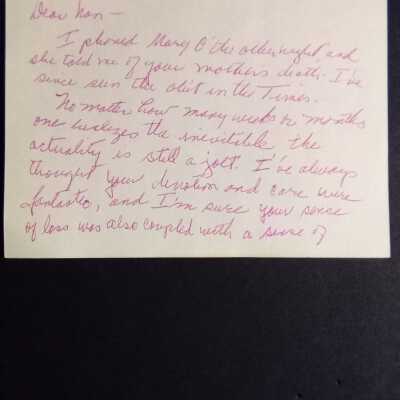 Dear Nan—
I phoned Mary O' the other night, and
she told me of your mother's death. I've
since seen the obit in the Times.
No matter how many weeks or months
one realizes the inevitible the
actuality is still a jolt. I've always
thought your devotion and care were
fantastic, and I'm sure your sense
of loss was also coupled with a sense of